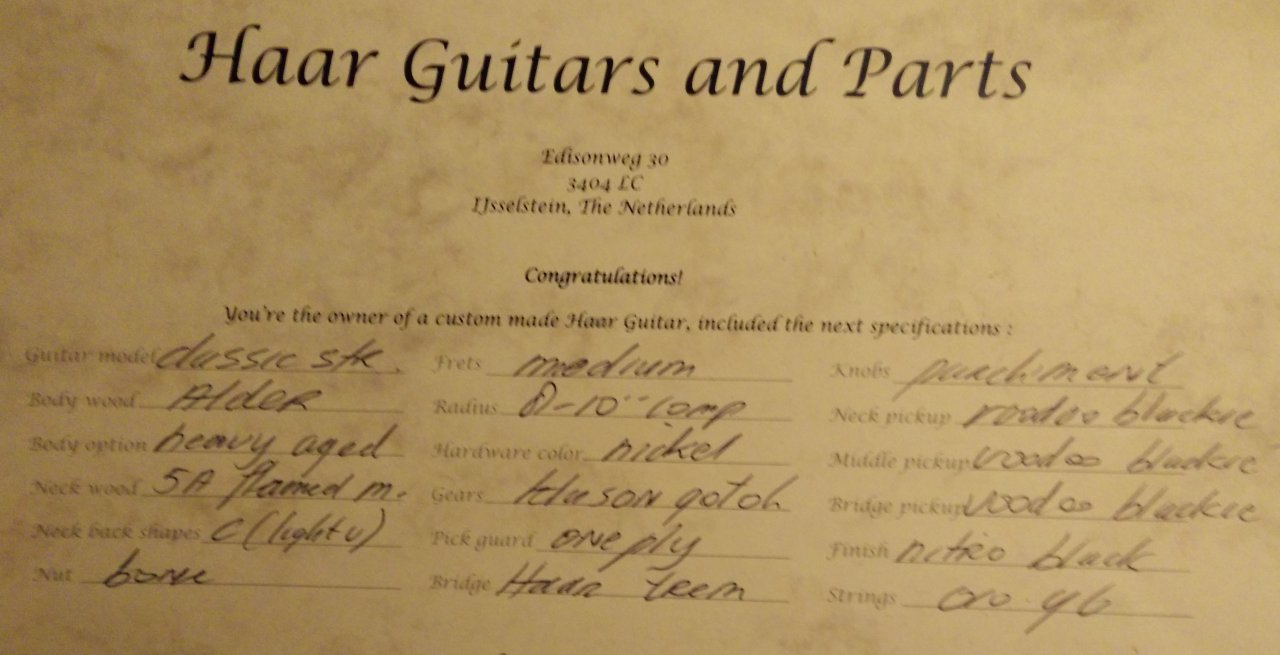 Haar Guitars and Parts
Edisonweg 30
3404 LC
IJsselstein, The Netherlands
Congratulations!
You're the owner of a custom made Haar Guitar, included the next specifications :
Guitar model classic str. Frets medium Knobs parchment
Body wood Alder Radius 9-10" comp Neck pickup voodoo blackie
Body option heavy aged Hardware color nickel Middle pickup voodoo blackie
Neck wood 5A flamed m. Gears kluson gotoh Bridge pickup voodoo blackie
Neck back shapes C (light v) Pick guard one ply Finish nitro black
Nut bone Bridge Haar trem Strings 010-46